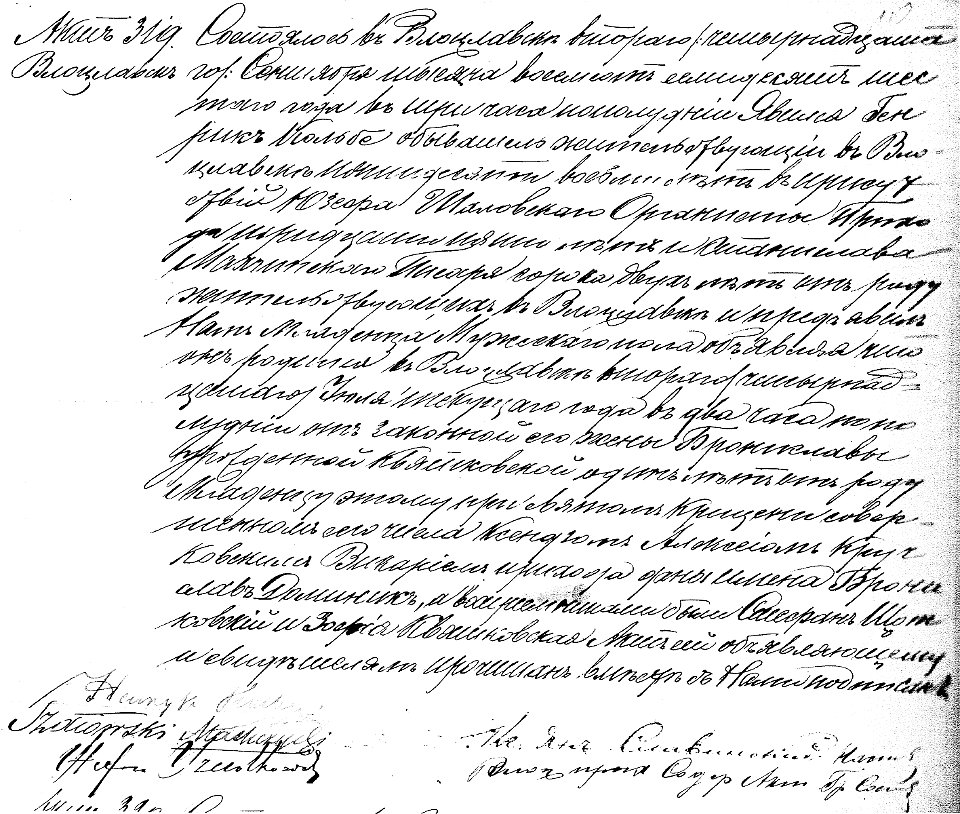 Актъ 319. Состоялось въ Влоцлавскѣ втораго /:четырнадцата
Влоцлавскъ го/: Сентября тысяча восемсотъ семидесятъ шес
таго года въ три часа пополудніи Явился Ген
рикъ обыватель жительствующій въ Вло
цлавскѣ пятидесяти восьми лѣтъ въ присут
ствій Юзефа Шядовскаго Органисты Прихо
да тридцати пяти лѣтъ и Станислава
Писаря сорока двухъ лѣтъ отъ роду
жительствующихъ въ Влоцлавкѣ и предъявилъ
Намъ Младенца Мужескаго пола объявляя что
онъ родился въ Влоцлавскѣ втораго /четырнад
цатаго/ Іюля текущаго года въ два часа попо
лудніи отъ законной его жены Брониславы
урожденной одинъ лѣтъ отъ роду
Младенцу этому при святомъ крещеніи совер
шенномъ его числа Ксендзомъ Алексіемъ Круч
ковскимъ Викаріемъ прихода даны имена Брони
славъ Доминикъ, а воспріемниками были Шот
ковскій и Зофія Квятковская Актъ сей объявляющему
и свидѣтелямъ прочитанъ вмѣстѣ съ Нами подписанъ
Henryk
Szadowski
Кс. Янъ
Влоц. прих Содер Акт Гр Сост
Актъ 320